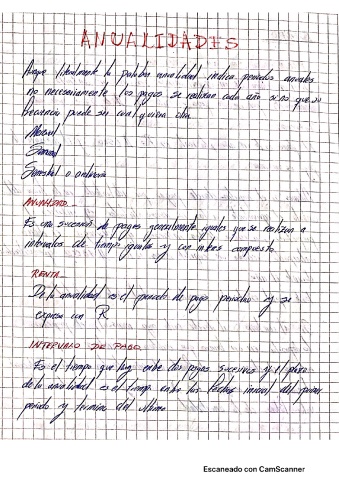 ANUALIDADES
Aunque literalmente la palabra anualidad indica periodos anuales
no necesariamente los pagos se realizan cada año si no que su
frecuencia puede ser con quiera otra
Mensual
Semanal
Semestral o
ANUALIDAD.-
Es una sucesión de pagos generalmente iguales que se realizan a
intervalos de tiempo iguales y con interes compuesto.
RENTA.-
De la anualidad es el de pago periodico y se
expresa con R
INTERVALO DE PAGO
Es el tiempo que hay entre dos pagos sucesivos y el plazo
de la anualidad es el tiempo entre las fechas inicial del primer
periodo y termina del ultimo
Escaneado con CamScanner